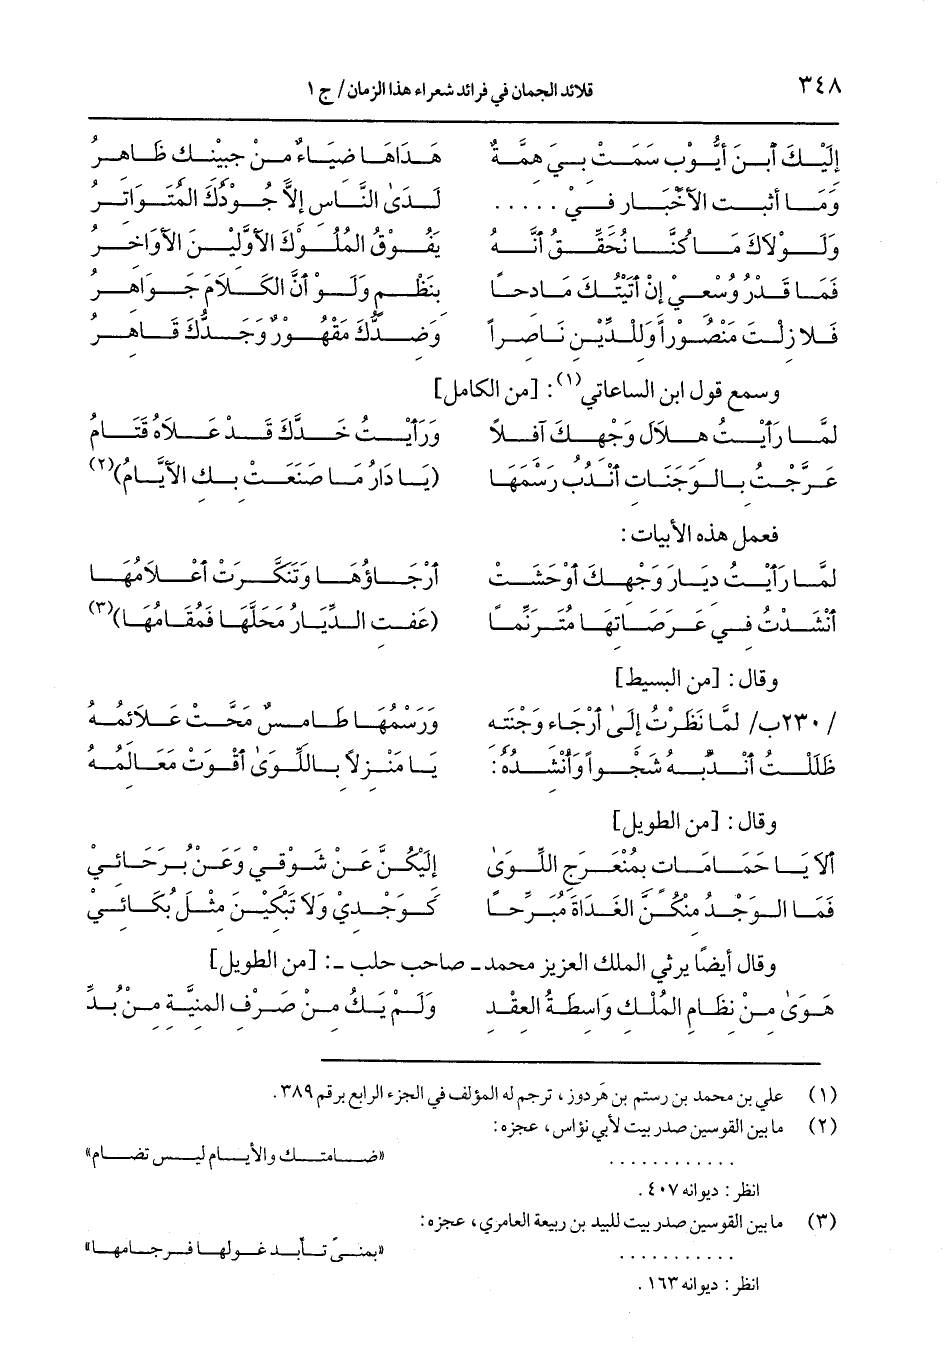 ٣٤٨ قلائد الجمان في فرائد شعراء هذا الزمان/ ج ١
إِلَيْكَ أبنَ أَيُّوبٍ سَمَتْ بيَ هِمَّةٌ هَدَاهَا ضِيَاءٌ مِنْ جَبِيْنِكَ ظَاهِرُ
وَمَا أثبتَ الأَخْبَارَ فِيْ ..... لَدَىٰ النَّاسِ إِلاَّ جُوْدُكَ المُتَوَاتِرُ
وَلَوْلاَكَ مَا كُنَّا نُحَقِّقُ أنَّهُ يَفُوْقُ المُلُوْكَ الأَوَّلِيْنَ الأَوَاخِرُ
فَمَا قَدْرُ وُسْعِي إِنْ أَتَيْتُكَ مَادِحاً بِنَظْمٍ وَلَوْ أنَّ الكَلاَمَ جَوَاهِرُ
فَلاَ زِلْتَ مَنْصُوْراً وَلِلدِّيْنِ نَاصِراً وَضِدُّكَ مَقْهُوْرٌ وَجَدُّكَ قَاهِرُ
وسمع قول ابن الساعاتي(١): [من الكامل]
لَمَّا رَأَيْتُ هِلاَلَ وَجْهِكَ آفِلاً وَرَأَيْتُ خَدَّكَ قَدْ عَلاَهُ قَتَامُ
عَرَّجْتُ بِالوَجَنَاتِ أَنْدُبُ رَسْمَهَا (يَا دَارُ مَا صَنَعَتْ بِكِ الأَيَّامُ)(٢)
فعمل هذه الأبيات :
لَمَّا رَأَيْتُ دِيَارَ وَجْهِكَ أَوْحَشَتْ أَرْجَاؤُهَا وَتَنَكَّرَتْ أَعْلاَمُهَا
أَنْشَدْتُ فِي عَرَصَاتِهَا مُتَرَنِّماً (عَفَتِ الدِّيَارُ مَحَلُّهَا فَمُقَامُهَا)(٣)
وقال : [من البسيط]
/ ٢٣٠ب/ لَمَّا نَظَرْتُ إِلَىٰ أَرْجَاءِ وَجْنَتِهِ وَرَسْمُهَا طَامِسٌ مُحَّتْ عَلاَئِمُهُ
ظَلَلْتُ أَنْدُبُهُ شَجْواً وَأُنْشِدُهُ: يَا مَنْزِلاً بِاللِّوَىٰ أَقْوَتْ مَعَالِمُهُ
وقال : [من الطويل]
أَلاَ يَا حَمَامَاتٍ بِمُنْعَرَجِ اللِّوَىٰ إِلَيْكُنَّ عَنْ شَوْقِيْ وَعَنْ بُرَحَائِيْ
فَمَا الوَجْدُ مِنْكُنَّ الغَدَاةَ مُبَرِّحاً كَوَجْدِيْ وَلاَ تَبْكِيْنَ مِثْلَ بُكَائِيْ
وقال أيضاً يرثي الملك العزيز محمد ـ صاحب حلب ـ: [من الطويل]
هَوَىٰ مِنْ نِظَامِ المُلْكِ وَاسِطَةُ العِقْدِ وَلَمْ يَكُ مِنْ صَرْفِ المَنِيَّةِ مِنْ بُدِّ
(١) علي بن محمد بن رستم بن هَردوز، ترجم له المؤلف في الجزء الرابع برقم ٣٨٩.
(٢) ما بين القوسين صدر بيت لأبي نؤاس، عجزه:
............ «ضامتك والأيام ليس تضام»
انظر : ديوانه ٤٠٧ .
(٣) ما بين القوسين صدر بيت للبيد بن ربيعة العامري، عجزه:
........... «بمنىً تأبد غولها فرجامها»
انظر : ديوانه ١٦٣ .